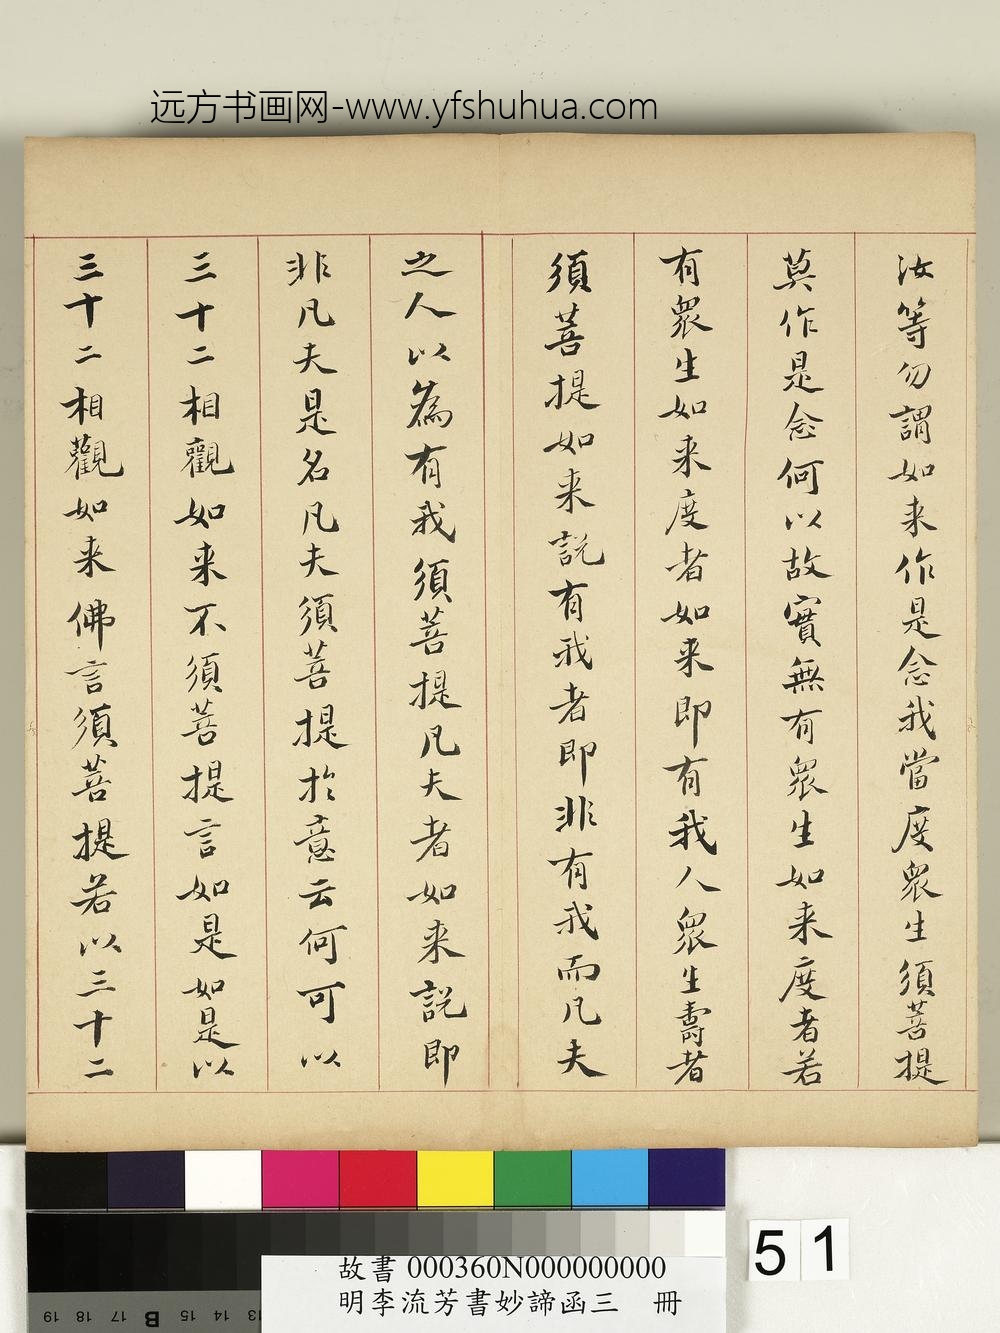 远方书画网-www.yfshuhua.com
汝等勿謂如来作是念我當度衆生須菩提
莫作是念何以故實無有衆生如来度者若
有衆生如来度者如来即有我人衆生壽者
須菩提如来説有我者即非有我而凡夫
之人以為有我須菩提凡夫者如来説即
非凡夫是名凡夫須菩提於意云何可以
三十二相觀如来不須菩提言如是如是以
三十二相觀如来佛言須菩提若以三十二
51
故書 000360N000000000
明李流芳書妙諦函三 冊
19 18 17 B 15 14 13